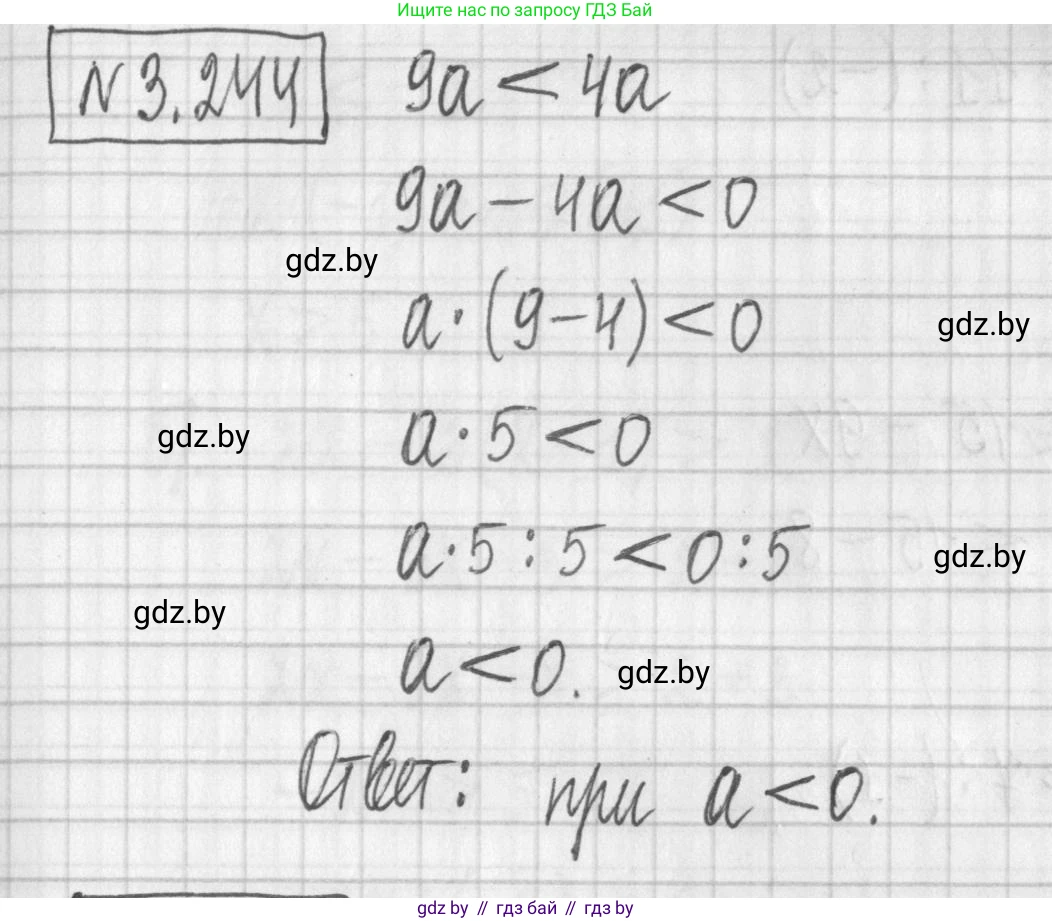 Ищите нас по запросу ГДЗ Бай
N 3.244
9a < 4a
9a - 4a < 0
gdz.by
a · (9-4) < 0
gdz.by
a · 5 < 0
gdz.by
a · 5 : 5 < 0 : 5
gdz.by
gdz.by
a < 0.
gdz.by
Ответ: при a < 0.
gdz by // гдз бай // гдз by